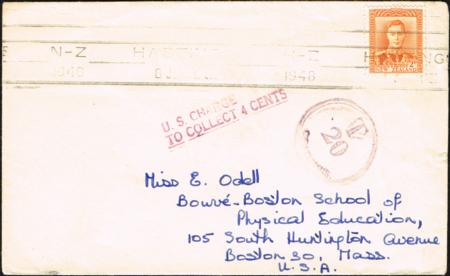 N-Z HAST N-Z HASTINGS
1948 8 JL 1948
NEW ZEALAND
U.S. CHARGE
TO COLLECT 4 CENTS
T
20
Miss E. Odell
Bouvé-Boston School of
Physical Education,
105 South Huntington Avenue
Boston 30, Mass.
U.S.A.